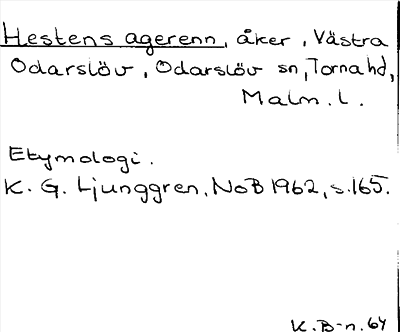 Hestens agerenn, åker, Västra
Odarslöv, Odarslöv sn, Torna hd,
Malm. l.
Etymologi.
K. G. Ljunggren, NoB 1962, s. 165.
K. B-n. 64